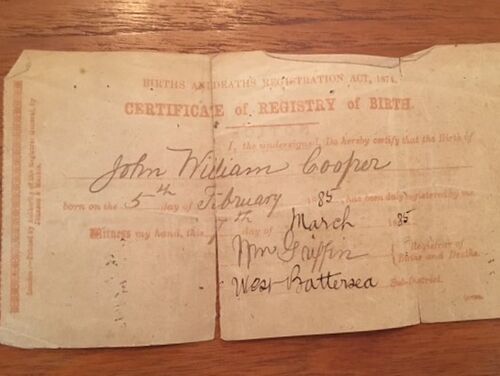 BIRTHS AND DEATHS REGISTRATION ACT, 1874.
CERTIFICATE of REGISTRY of BIRTH.
I, the undersigned, Do hereby certify that the Birth of
John William Cooper
born on the 5th day of February 1885, has been duly registered by me
Witness my hand, this 7th day of March 1885
Wm Griffin Registrar of Births and Deaths.
West Battersea Sub-District.